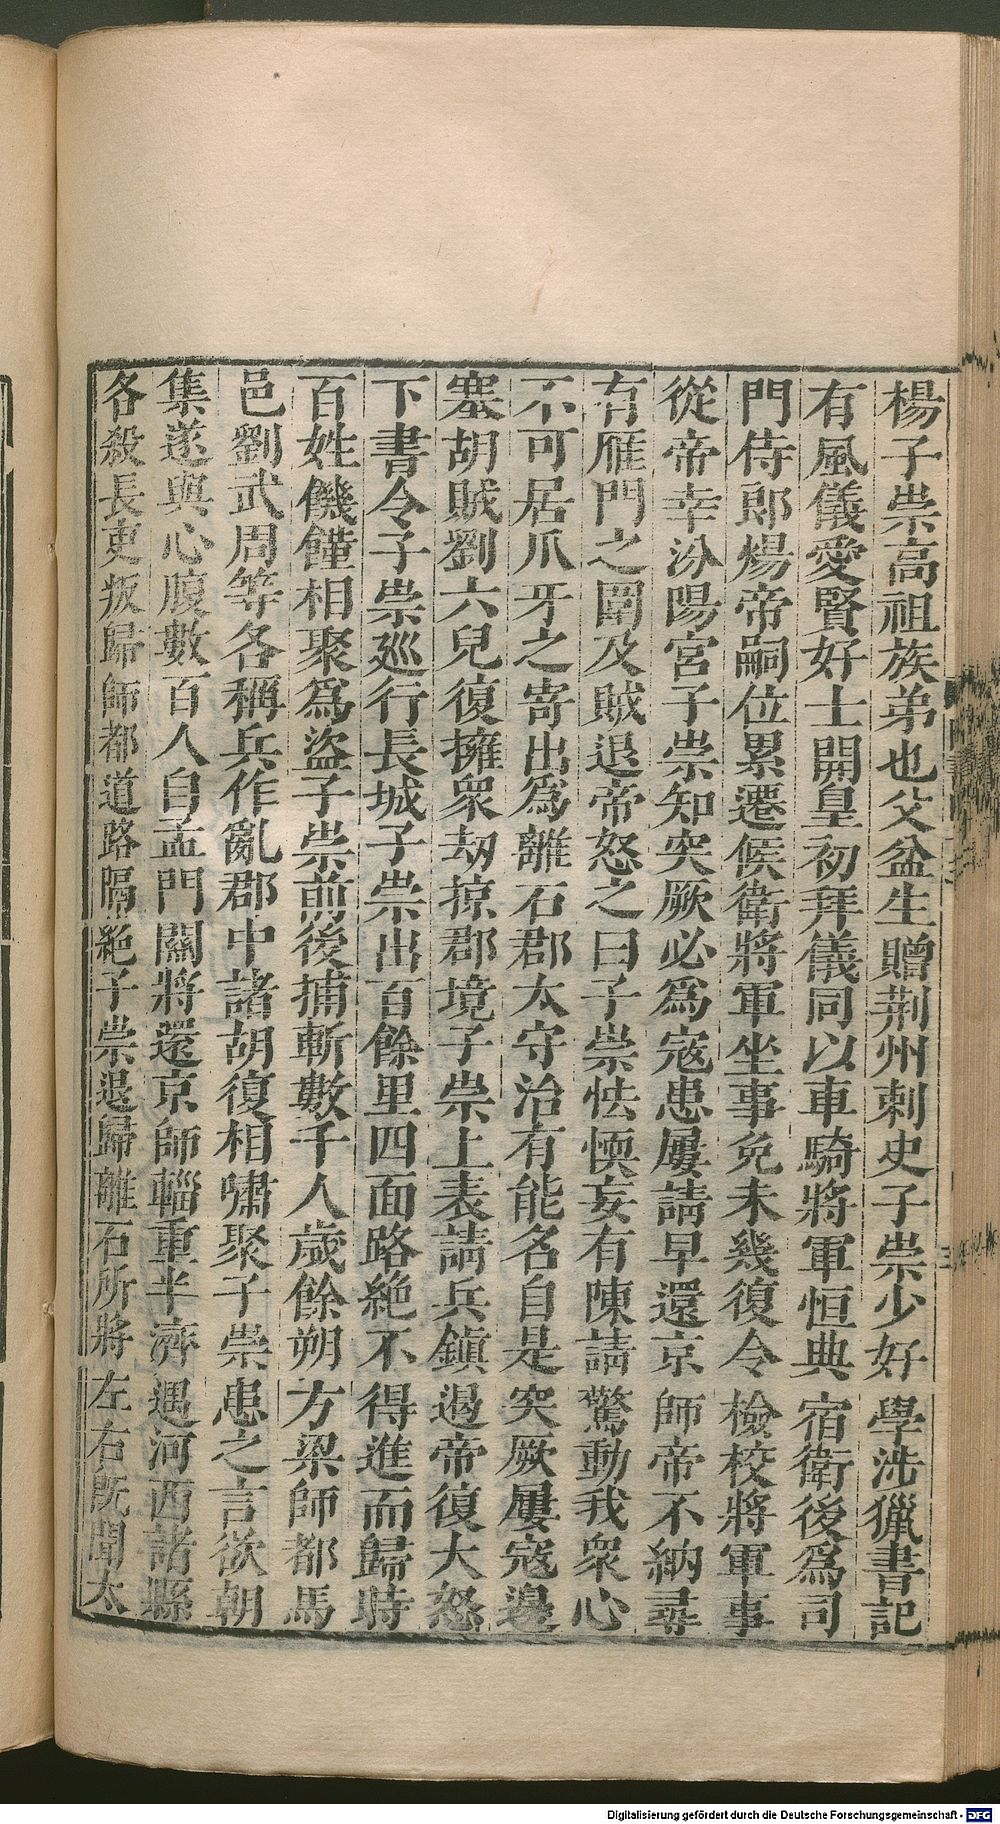 楊子崇高祖族弟也父盆生贈荆州刺史子崇少好學涉獵書記
有風儀愛賢好士開皇初拜儀同以車騎將軍恒典宿衛後爲司
門侍郎煬帝嗣位累遷候衛將軍坐事免未幾復令檢校將軍事
從帝幸汾陽宮子崇知突厥必爲寇患屢請早還京師帝不納尋
有雁門之圍及賊退帝怒之曰子崇怯愞妄有陳請驚動我衆心
不可居爪牙之寄出爲離石郡太守治有能名自是突厥屢寇邊
塞胡賊劉六兒復擁衆劫掠郡境子崇上表請兵鎭遏帝復大怒
下書令子崇巡行長城子崇出百餘里四面路絶不得進而歸時
百姓饑饉相聚爲盜子崇前後捕斬數千人歲餘朔方梁師都馬
邑劉武周等各稱兵作亂郡中諸胡復相嘯聚子崇患之言欲朝
集遂與心腹數百人自孟門關將還京師輜重半濟遇河西諸縣
各殺長吏叛歸師都道路隔絶子崇退歸離石所將左右既聞太
Digitalisierung gefördert durch die Deutsche Forschungsgemeinschaft - DFG